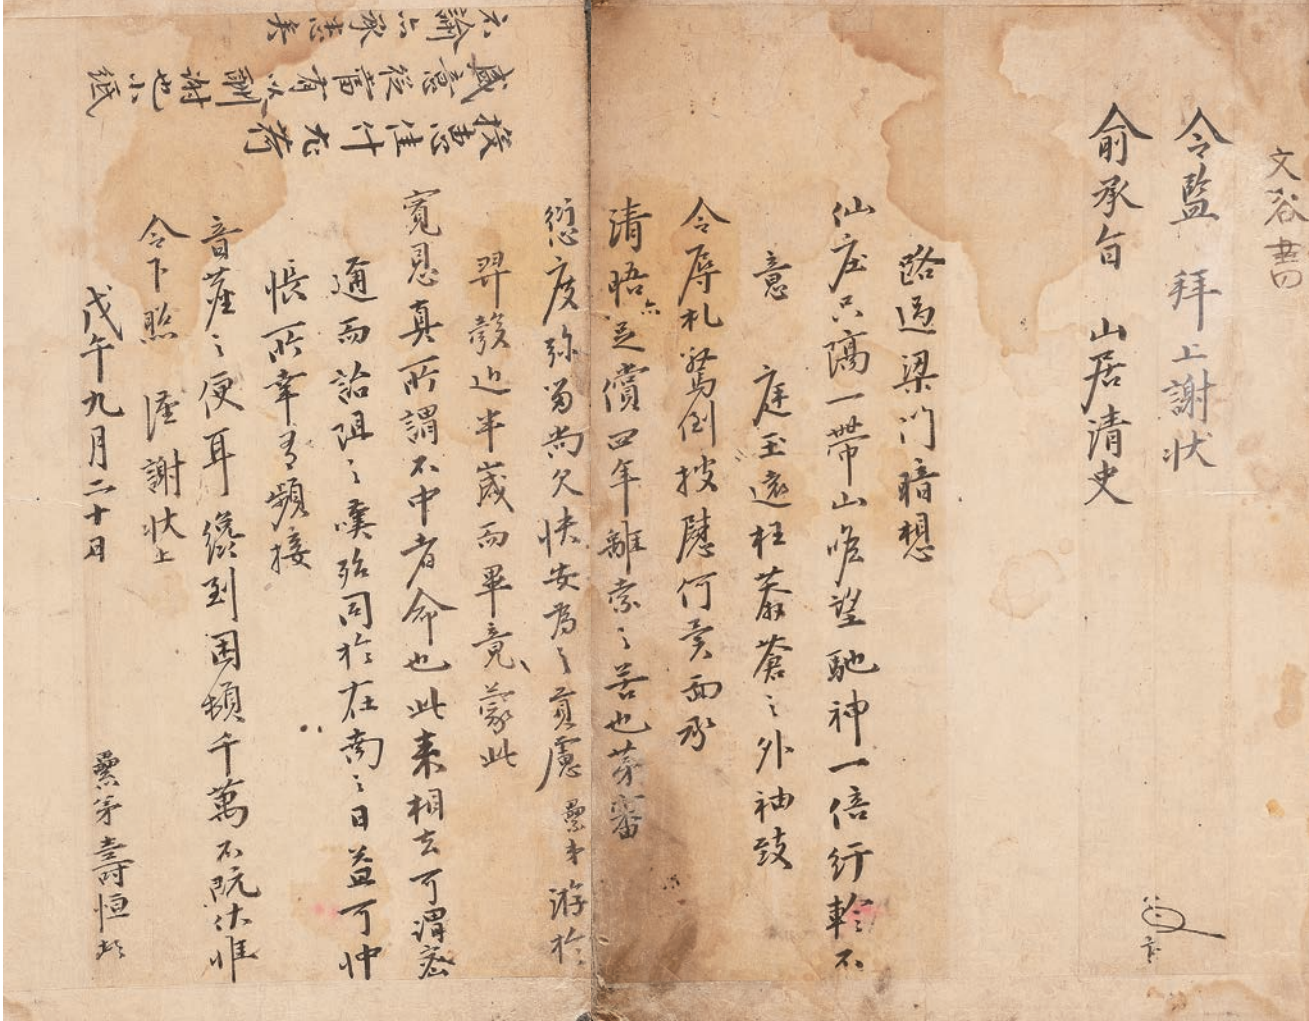 文谷書
令監 拜上謝狀
俞承旨 山居清史
路過梁門暗想
仙庄只隔一帶山嵬望馳神一倍行軫不
意 庭玉遠枉莽蒼之外袖致
令辱札驚倒披慰何喩而承
清晤亦足償四年離索之苦也第審
愆度彌留尚欠快安爲之貢慮 纍弟游於
羿彀近半歲而畢竟蒙此
寬恩眞所謂不中者命也此來相去可謂密
邇而詒阻之嘆殆同於在南之日益可忡
悵所幸 頻接
音塵之便耳 纔到困頓千萬不旣伏惟
令下照 謹謝狀上
戊午九月二十日
纍弟壽恒頓
投惠佳什尤荷
盛意從當有以酬謝也小紙
示諭亦承悉矣